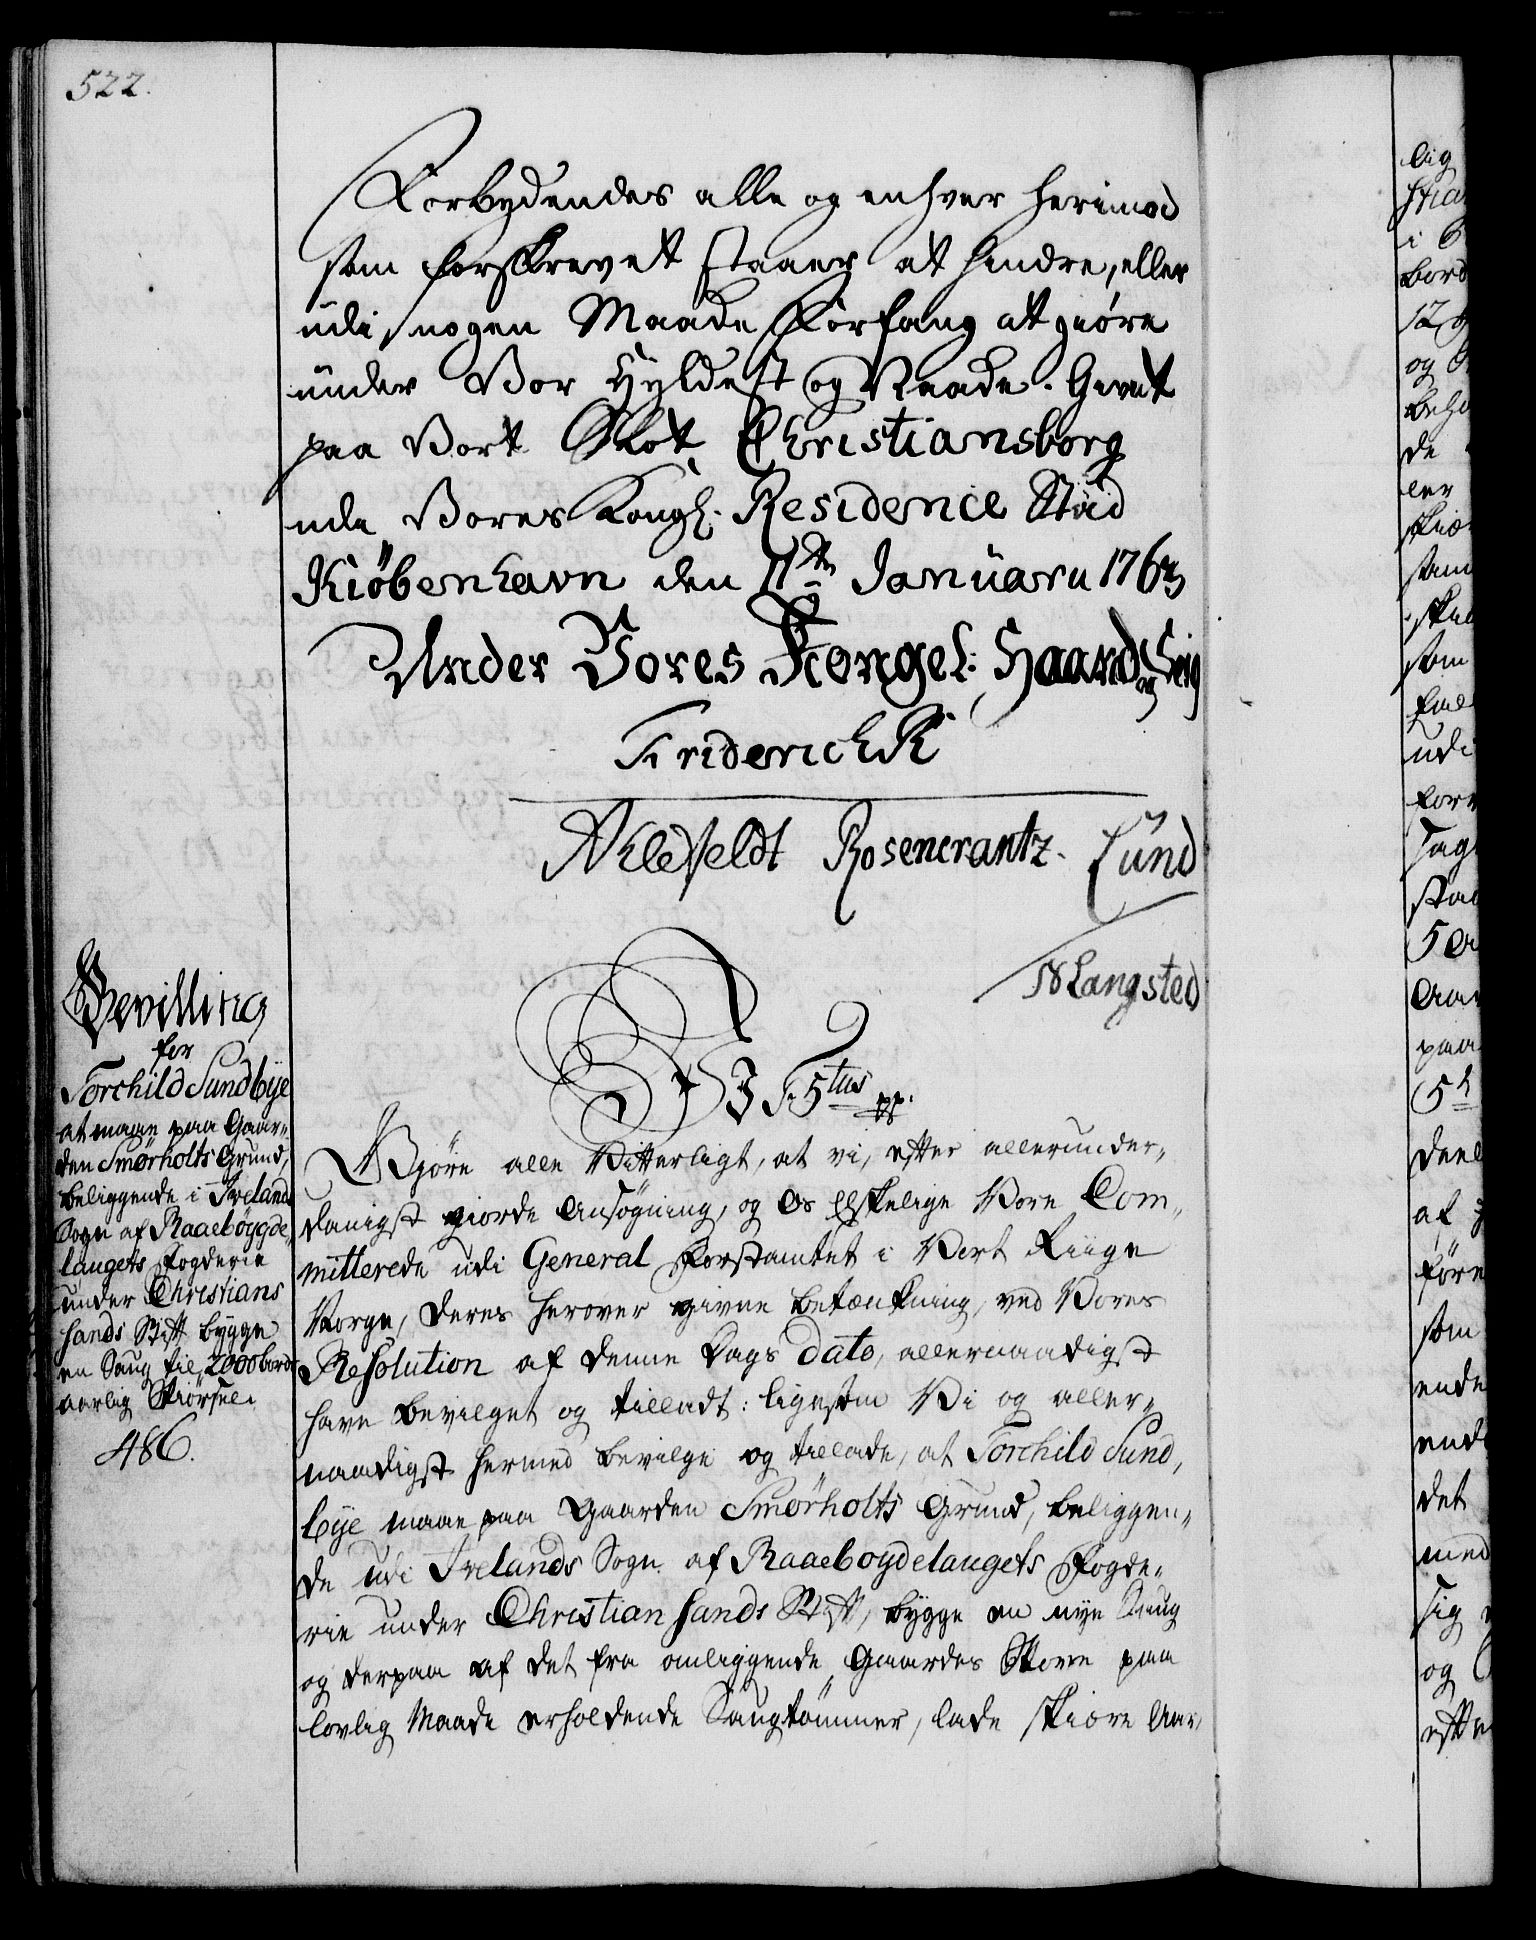 522.
Forbydendes alle og enhver herimod
som forskrevet staaer at hindre, eller
udi nogen Maade Forfang at giøre
under Vor Hyldest og Naade. Givet
paa Vort Slot Christiansborg
udi Vores Kongl. Residence Stad
Kiöbenhavn den 11te Januarii 1763
Under Vores Kongel: Haand og Seig
Friderich R
Ahlefeldt Rosencrantz. Lund
N Langsted
Bevilling
for
Torchild Sundbÿe
at maae paa Gaar-
den Smørholts Grund,
beliggende i Iveland
Sogn af Raaebøygde,
laugets Fogderie
under Christians
sands Stift bygge
en Saug til 2000 bord
aarlig Skiörsel.
486.
W J F 5tus pp.
Giöre alle Vitterligt, at vi, efter allerunder,,
danigst giorde Ansögning, og Os Elskelige Vore Com,,
mitterede udi General Forstamtet i Vort Riige
Norge, deres herover givne Betænkning, ved Vores
Resolution af denne Dags dato, allernaadigst
have bevilget og tilladt: ligesom Vi og aller,,
naadigst hermed bevilge og tillade, at Torchild Sund,
bye maae paa Gaarden Smørholts Grund, beliggen,,
de udi Ivelands Sogn af Raaeboydelaugets Fogde,,
rie under Christiansands Stift, bygge en nye Saug
og derpaa af det fra omliggende Gaardes Skove paa
lovlig Maade erholdende Saugtömmer, lade skiöre Aar,
lig
stia
i
bord
12
og
beha
de
ler
skiör
som
udi
forv
Sag
stad
5
Aar
paa
5
deel
af
före
som
ende
end
det
med
sig
og
efte